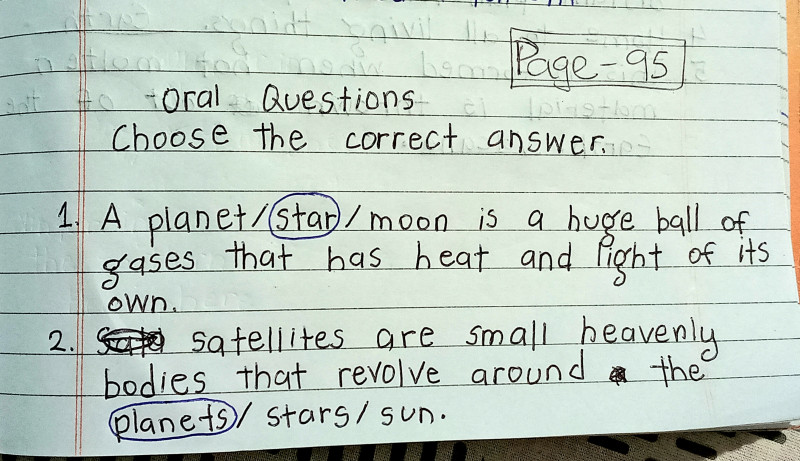 Page-95
Oral Questions
Choose the correct answer.
1. A planet/star/moon is a huge ball of
gases that has heat and light of its
own.
2. satellites are small heavenly
bodies that revolve around the
planets/ stars/ sun.